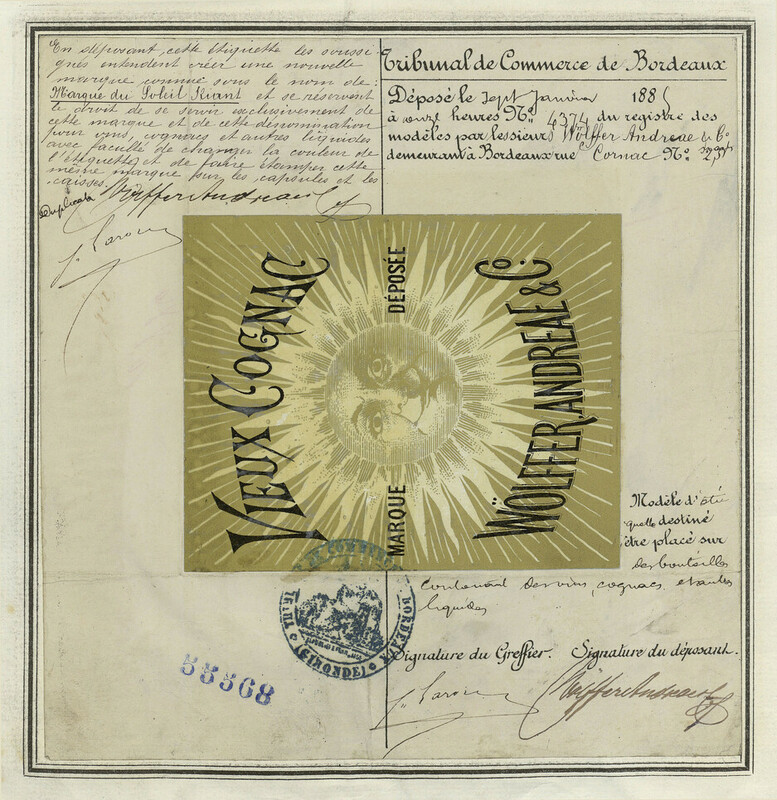 En déposant, cette étiquette les soussi-
gnés intendent créer une nouvelle
marque connue sous le nom de:
Marque du Soleil Riant et se réservent
le droit de se servir exclusivement de
cette marque et de cette dénomination
pour vins, cognacs et autres liquides
avec faculté de changer la couleur de
l'étiquette, et de faire étamper cette
même marque sur les capsules et les
caisses.
Wölffer Andreae & Co
Duplicata
Tribunal de Commerce de Bordeaux
Déposé le Sept Janvier 1885
à onze heures No. 4374 du registre des
modèles par les sieurs Wölffer Andreae & Co
demeurant à Bordeaux rue Cornac No.
VIEUX COGNAC
MARQUE DÉPOSÉE
WÖLFFER, ANDREAE & CO.
Modèle d'éti
quette destiné
être placé sur
des bouteilles
contenant des vins, cognacs et autres
liquides
TRIBUNAL DE COMMERCE BORDEAUX
(GIRONDE)
Signature du Greffier. Signature du déposant.
Wölffer Andreae & Co
55568